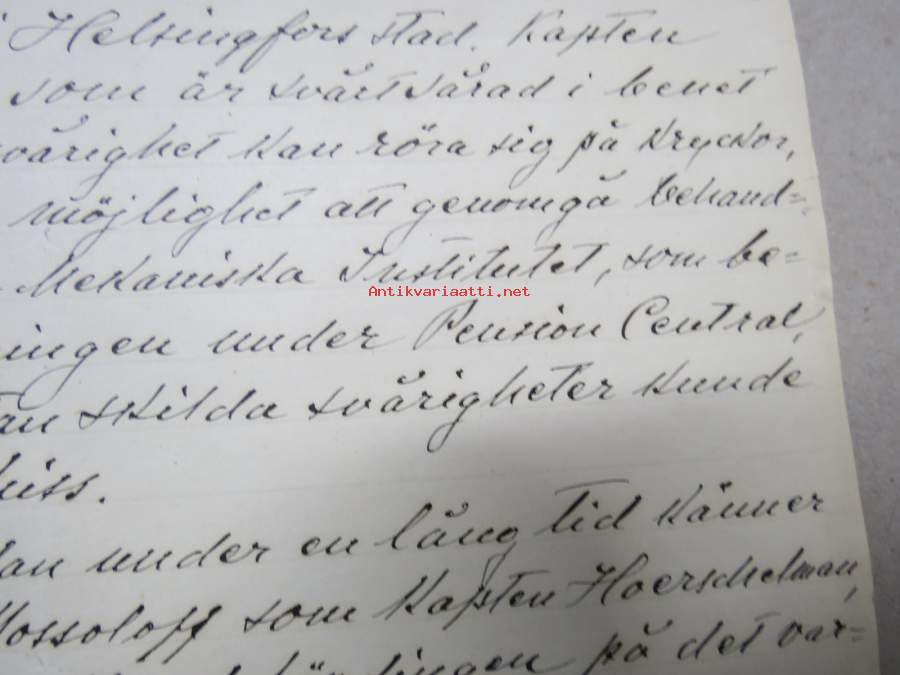 i Helsingfors stad. Kapten
som är svårt sårad i benet
svårighet kan röra sig på kryckor,
möjlighet att genomgå behand=
Mekaniska Institutet, som be=
Antikvariaatti.net
ningen under Pension Central,
an skilda svårigheter kunde
hiss.
dan under en lång tid känner
Mossoloff som Kapten Hoerschelman,
på det var=